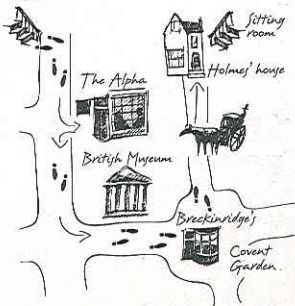 Sitting
room
Holmes' house
The Alpha
British Museum
Breckinridge's
Covent
Garden